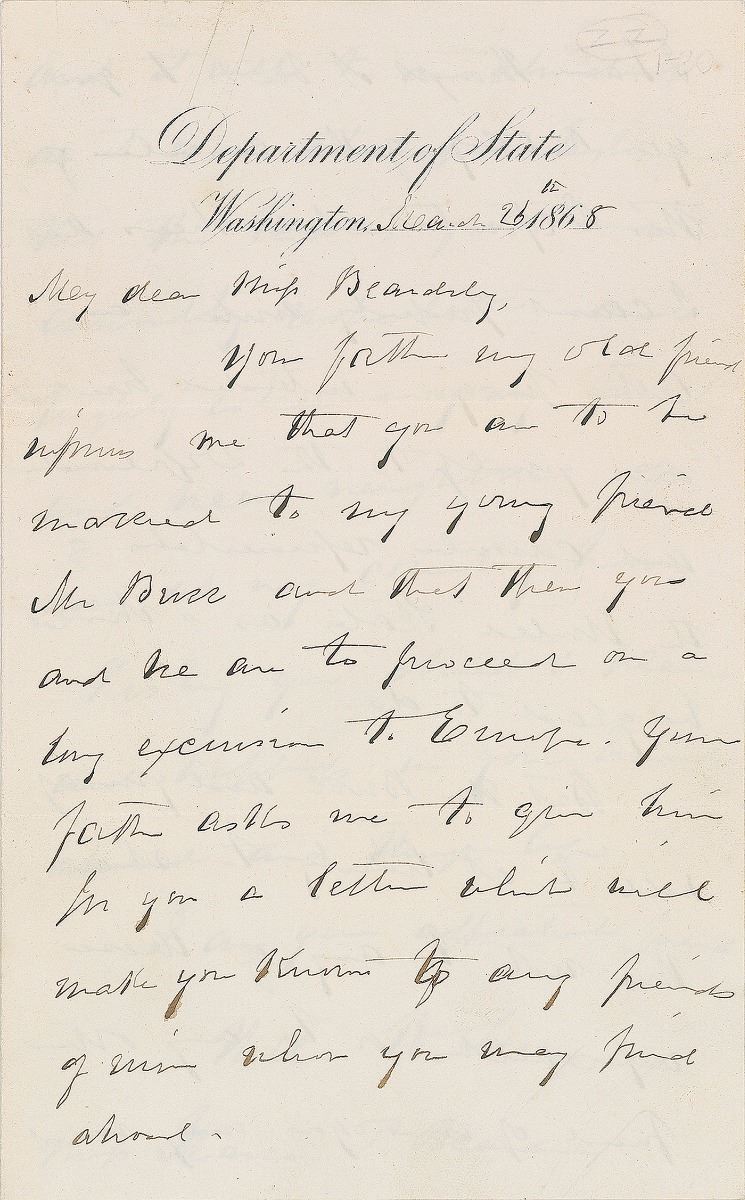 22
Department of State
Washington, March 26th 1868
My dear Miss Beardsley,
Your father my old friend
informs me that you are to be
married to my young friend
Mr and that then you
and he are to proceed on a
long excursion to Europe. Your
father asks me to give him
for you a letter which will
make you known to any friends
of mine whom you may find
abroad.